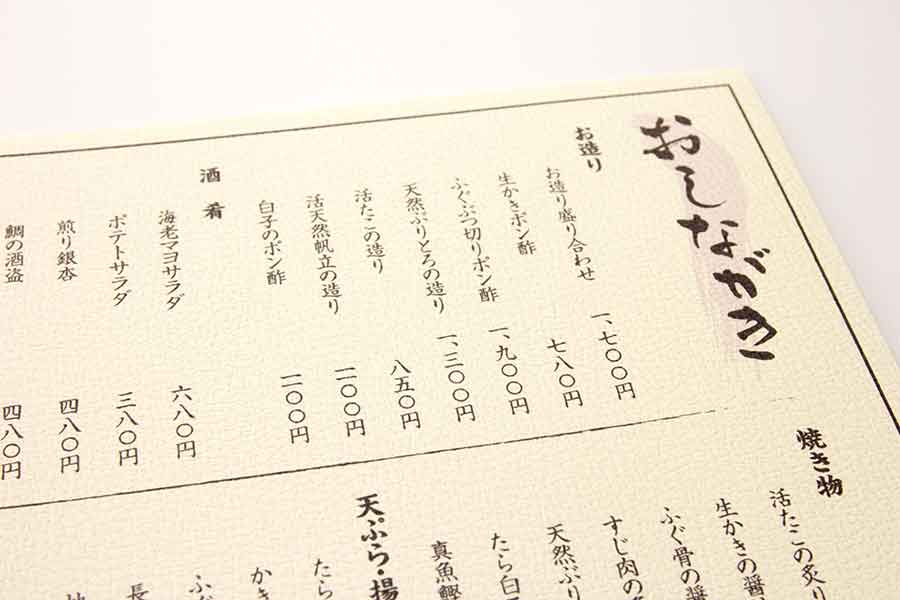 おしながき
お造り
お造り盛り合わせ 一、七〇〇円
生かきポン酢 七八〇円
ふぐぶつ切りポン酢 一、九〇〇円
天然ぶりとろの造り 一、三〇〇円
活たこの造り 八五〇円
活天然帆立の造り 二〇〇円
白子のポン酢 二〇〇円
酒肴
海老マヨサラダ 六八〇円
ポテトサラダ 三八〇円
煎り銀杏 四八〇円
鯛の酒盗 四八〇円
焼き物
活たこの炙り
生かきの醤
ふぐ骨の醤
すじ肉の
天然ぶり
たら白
真魚鰹
天ぷら・揚
たら
かき
ふぐ
長